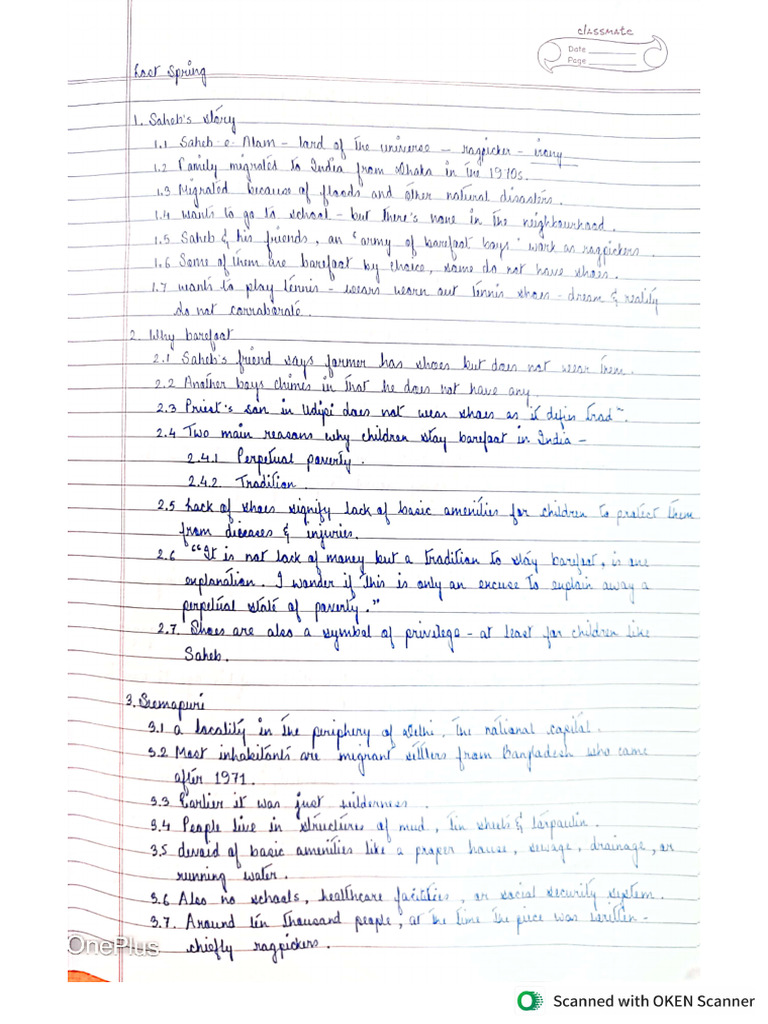 classmate
Date
Page
Lost Spring
1. Saheb's story
1.1 Saheb-e-Alam - lord of the universe - ragpicker - irony
1.2 Family migrated to India from Dhaka in the 1970s.
1.3 Migrated because of floods and other natural disasters.
1.4 wants to go to school - but there's none in the neighbourhood.
1.5 Saheb & his friends, an 'army of barefoot boys' work as ragpickers.
1.6 Some of them are barefoot by choice, some do not have shoes.
1.7 wants to play tennis - wears worn out tennis shoes - dream & reality
do not corroborate.
2. Why barefoot
2.1 Saheb's friend says former has shoes but does not wear them.
2.2 Another boys chimes in that he does not have any.
2.3 Priest's son in Udipi does not wear shoes as it defies tradⁿ.
2.4 Two main reasons why children stay barefoot in India -
2.4.1 Perpetual poverty.
2.4.2 Tradition.
2.5 Lack of shoes signify lack of basic amenities for children to protect them
from diseases & injuries.
2.6 "It is not lack of money but a tradition to stay barefoot, is one
explanation. I wonder if this is only an excuse to explain away a
perpetual state of poverty."
2.7. Shoes are also a symbol of privilege - at least for children like
Saheb.
3. Seemapuri
3.1 a locality in the periphery of Delhi, the national capital.
3.2 Most inhabitants are migrant settlers from Bangladesh who came
after 1971.
3.3 Earlier it was just wilderness.
3.4 People live in structures of mud, tin sheets & tarpaulin.
3.5 devoid of basic amenities like a proper house, sewage, drainage, or
running water.
3.6 Also no schools, healthcare facilities, or social security system.
3.7. Around ten thousand people, at the time the piece was written -
chiefly ragpickers.
OnePlus
Scanned with OKEN Scanner